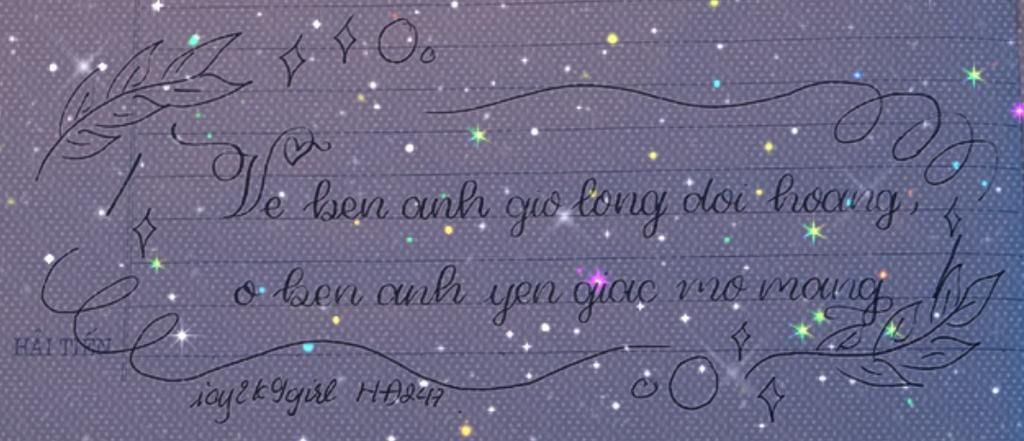 Ve ben anh gio long doi hoang,
o ben anh yen giac mo mang
HẢI TIẾN
icy2k9girl HA247